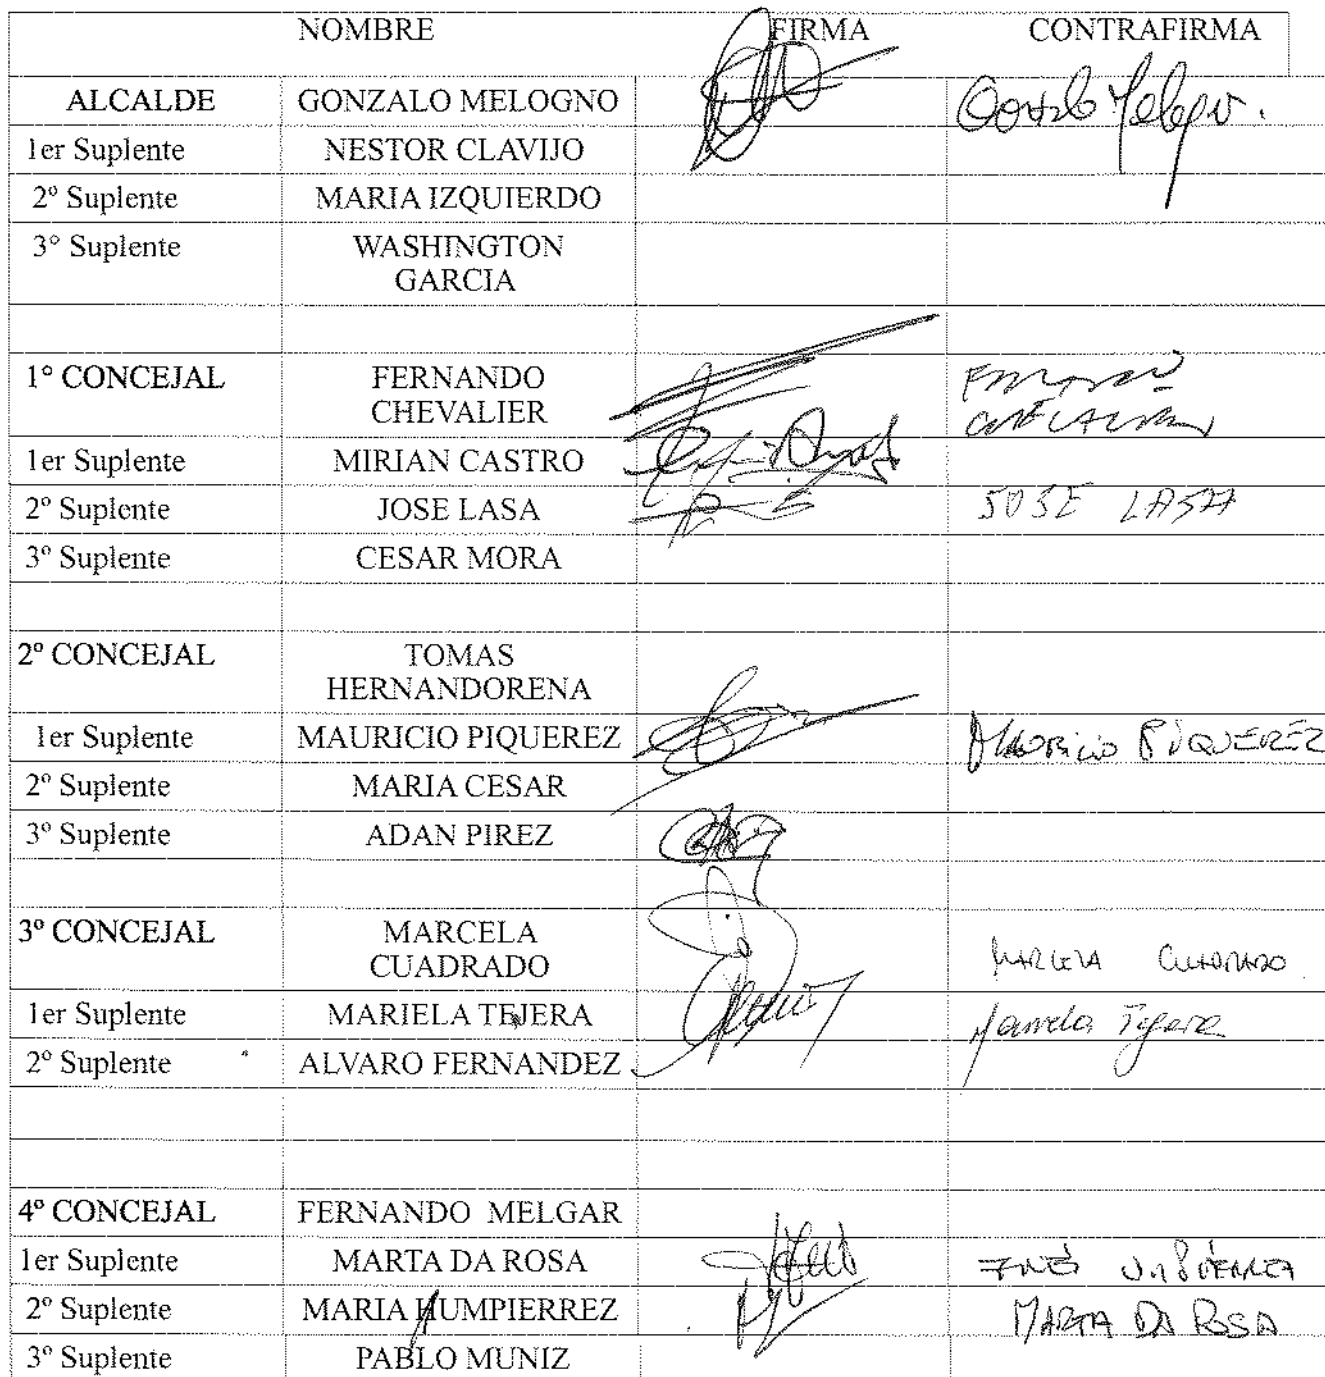 NOMBRE FIRMA CONTRAFIRMA
ALCALDE GONZALO MELOGNO Gonzalo Melogno.
1er Suplente NESTOR CLAVIJO
2º Suplente MARIA IZQUIERDO
3º Suplente WASHINGTON
GARCIA
1º CONCEJAL FERNANDO
CHEVALIER
1er Suplente MIRIAN CASTRO
2º Suplente JOSE LASA JOSE LASA
3º Suplente CESAR MORA
2º CONCEJAL TOMAS
HERNANDORENA
1er Suplente MAURICIO PIQUEREZ MAURICIO PIQUEREZ
2º Suplente MARIA CESAR
3º Suplente ADAN PIREZ
3º CONCEJAL MARCELA
CUADRADO MARCELA CUADRADO
1er Suplente MARIELA TEJERA Mariela Tejera
2º Suplente ALVARO FERNANDEZ
4º CONCEJAL FERNANDO MELGAR
1er Suplente MARTA DA ROSA
2º Suplente MARIA HUMPIERREZ MARTA DA ROSA
3º Suplente PABLO MUNIZ